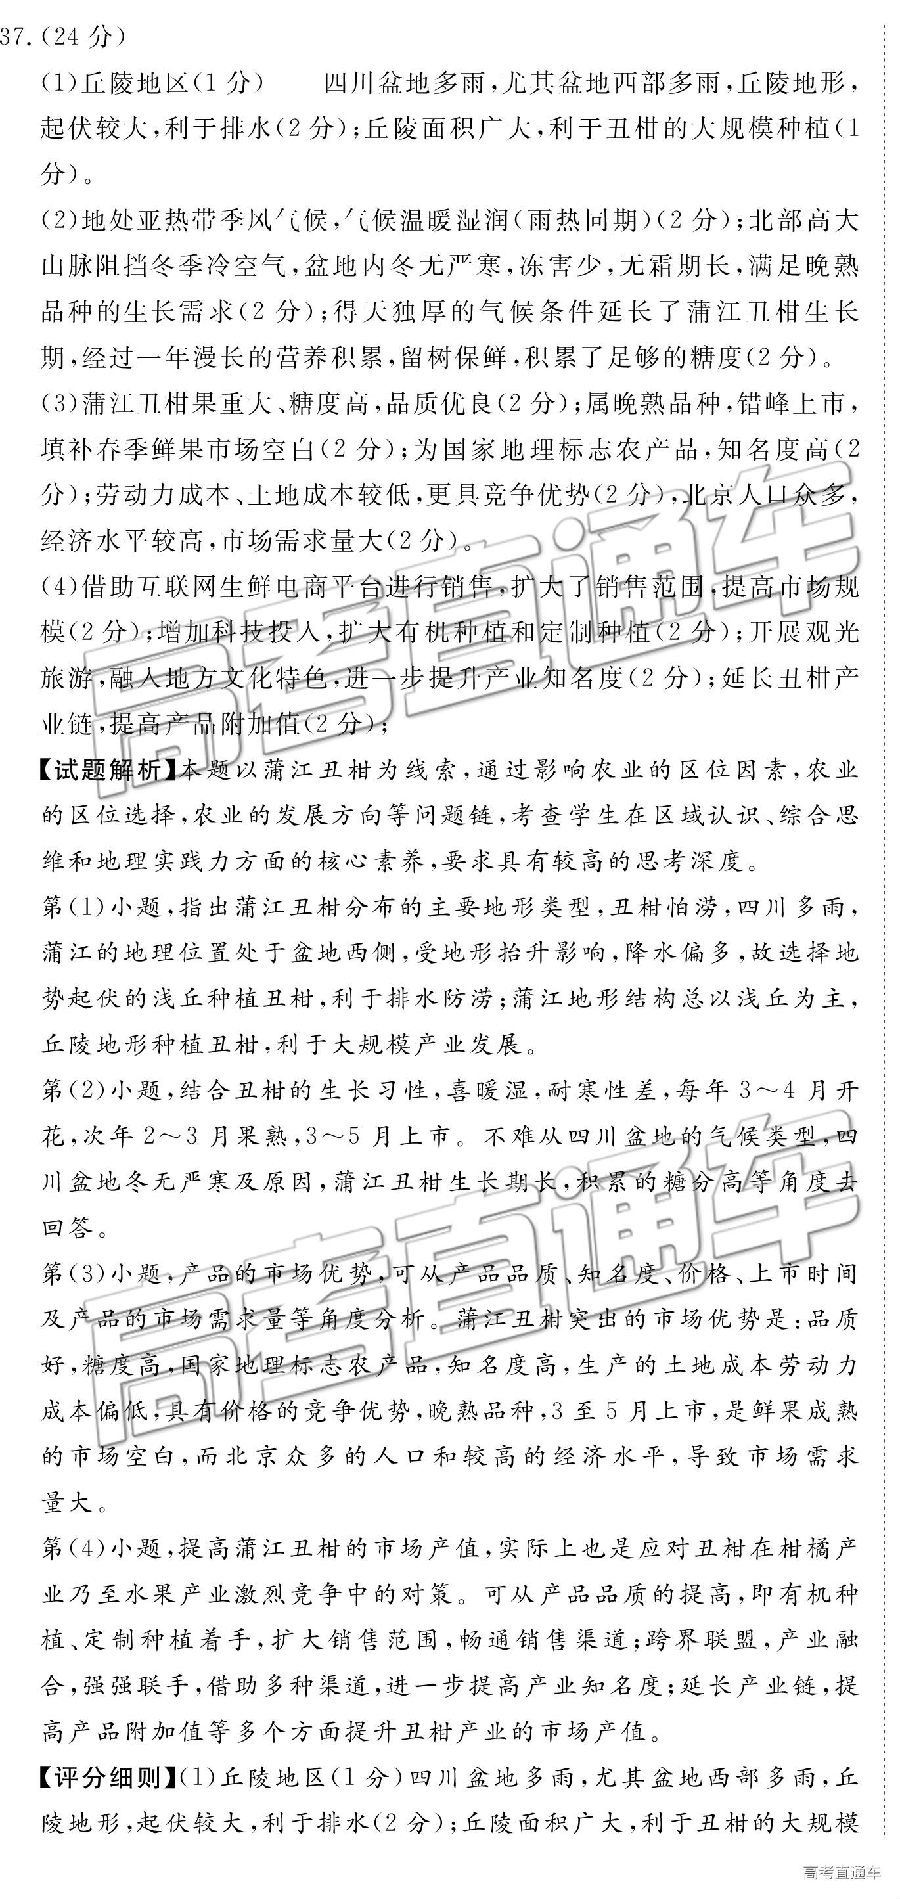 37.(24 分)
(1)丘陵地区(1 分)　　四川盆地多雨,尤其盆地西部多雨,丘陵地形,
起伏较大,利于排水(2 分);丘陵面积广大,利于丑柑的大规模种植(1
分)。
(2)地处亚热带季风气候,气候温暖湿润(雨热同期)(2 分);北部高大
山脉阻挡冬季冷空气,盆地内冬无严寒,冻害少,无霜期长,满足晚熟
品种的生长需求(2 分);得天独厚的气候条件延长了蒲江丑柑生长
期,经过一年漫长的营养积累,留树保鲜,积累了足够的糖度(2 分)。
(3)蒲江丑柑果重大、糖度高,品质优良(2 分);属晚熟品种,错峰上市,
填补春季鲜果市场空白(2 分);为国家地理标志农产品,知名度高(2
分);劳动力成本、土地成本较低,更具竞争优势(2 分),北京人口众多,
经济水平较高,市场需求量大(2 分)。
(4)借助互联网生鲜电商平台进行销售,扩大了销售范围,提高市场规
模(2 分);增加科技投入,扩大有机种植和定制种植(2 分);开展观光
旅游,融入地方文化特色,进一步提升产业知名度(2 分);延长丑柑产
业链,提高产品附加值(2 分);
【试题解析】本题以蒲江丑柑为线索,通过影响农业的区位因素,农业
的区位选择,农业的发展方向等问题链,考查学生在区域认识、综合思
维和地理实践力方面的核心素养,要求具有较高的思考深度。
第(1)小题,指出蒲江丑柑分布的主要地形类型,丑柑怕涝,四川多雨,
蒲江的地理位置处于盆地西侧,受地形抬升影响,降水偏多,故选择地
势起伏的浅丘种植丑柑,利于排水防涝;蒲江地形结构总以浅丘为主,
丘陵地形种植丑柑,利于大规模产业发展。
第(2)小题,结合丑柑的生长习性,喜暖湿,耐寒性差,每年 3～4 月开
花,次年 2～3 月果熟,3～5 月上市。不难从四川盆地的气候类型,四
川盆地冬无严寒及原因,蒲江丑柑生长期长,积累的糖分高等角度去
回答。
第(3)小题,产品的市场优势,可从产品品质、知名度、价格、上市时间
及产品的市场需求量等角度分析。蒲江丑柑突出的市场优势是:品质
好,糖度高,国家地理标志农产品,知名度高,生产的土地成本劳动力
成本偏低,具有价格的竞争优势,晚熟品种,3 至 5 月上市,是鲜果成熟
的市场空白,而北京众多的人口和较高的经济水平,导致市场需求
量大。
第(4)小题,提高蒲江丑柑的市场产值,实际上也是应对丑柑在柑橘产
业乃至水果产业激烈竞争中的对策。可从产品品质的提高,即有机种
植、定制种植着手,扩大销售范围,畅通销售渠道;跨界联盟,产业融
合,强强联手,借助多种渠道,进一步提高产业知名度;延长产业链,提
高产品附加值等多个方面提升丑柑产业的市场产值。
【评分细则】(1)丘陵地区(1 分)四川盆地多雨,尤其盆地西部多雨,丘
陵地形,起伏较大,利于排水(2 分);丘陵面积广大,利于丑柑的大规模
高考直通车
高考直通车
高考直通车